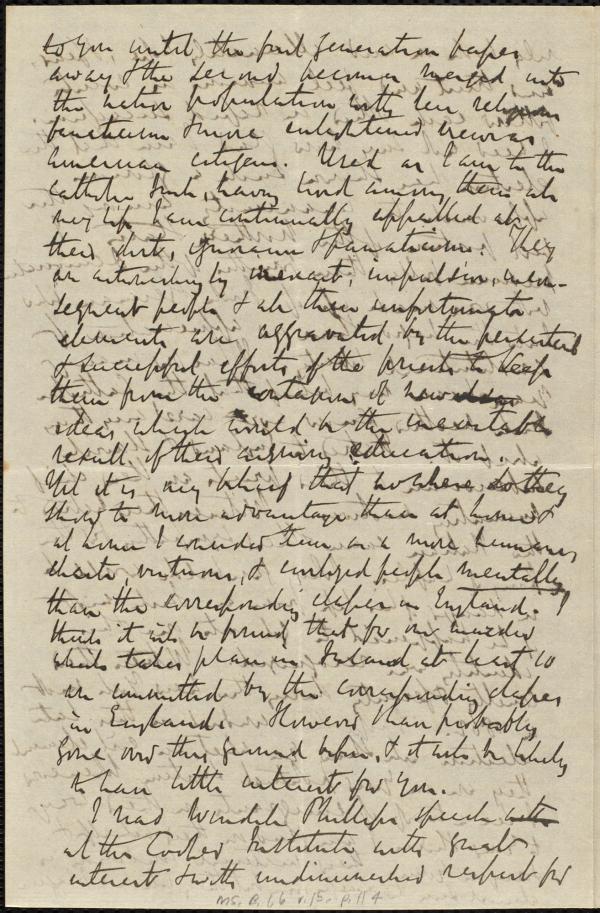 to you until the first generation passes
away & the second becomes merged into
the native population with less religious
fanaticism & more enlightened views as
American citizens. Used as I am to the
Catholic Irish, having lived among them all
my life I am continually appalled at
their dirt, ignorance & fanaticism. They
are astonishingly inexact, impulsive, incon-
sequent people & all these unfortunate
elements are aggravated by the persistent
& successful efforts of the priests to keep
them from the contagion of new
ideas which would be the inevitable
result of their acquiring education.
Yet it is my belief that nowhere do they
show to more advantage than at home &
at home I consider them as a more humane,
chaste, virtuous, & civilized people mentally,
than the corresponding classes in England. I
think it will be found that for one murder
which takes place in Ireland at least 10
are committed by the corresponding classes
in England. However I have probably
gone over this ground before, & it will be likely
to have little interest for you.
I read Wendell Phillips speech
at the Cooper Institute with great
interest & with undiminished respect for
MS. B. 1.6 v.15. p.114